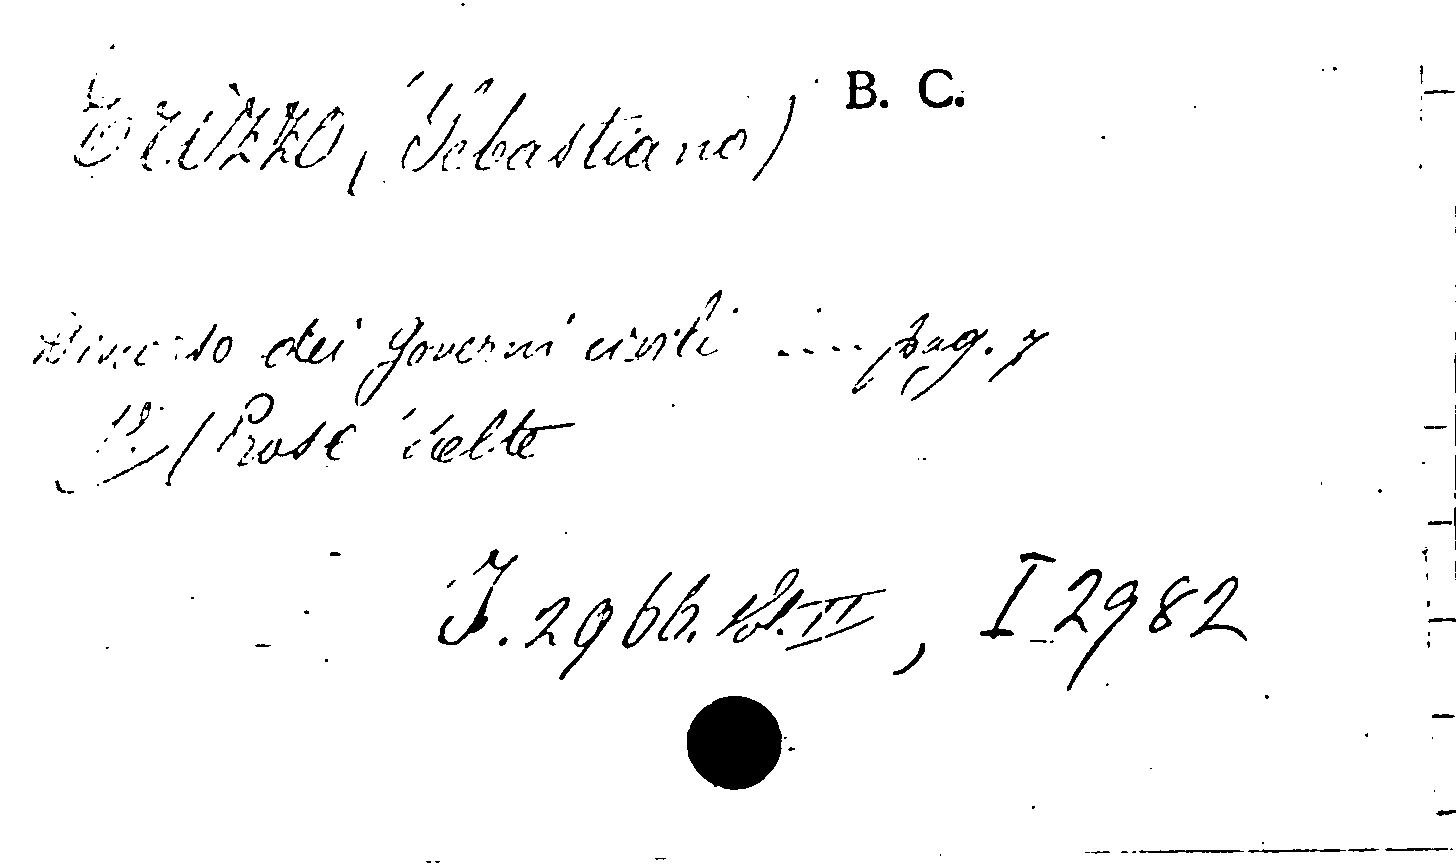 B. C.
ERIZZO, (Sebastiano)
Discorso dei Governi civili .... pag. 7
V. / Prose scelte
I. 2966. Vol. II , I 2982